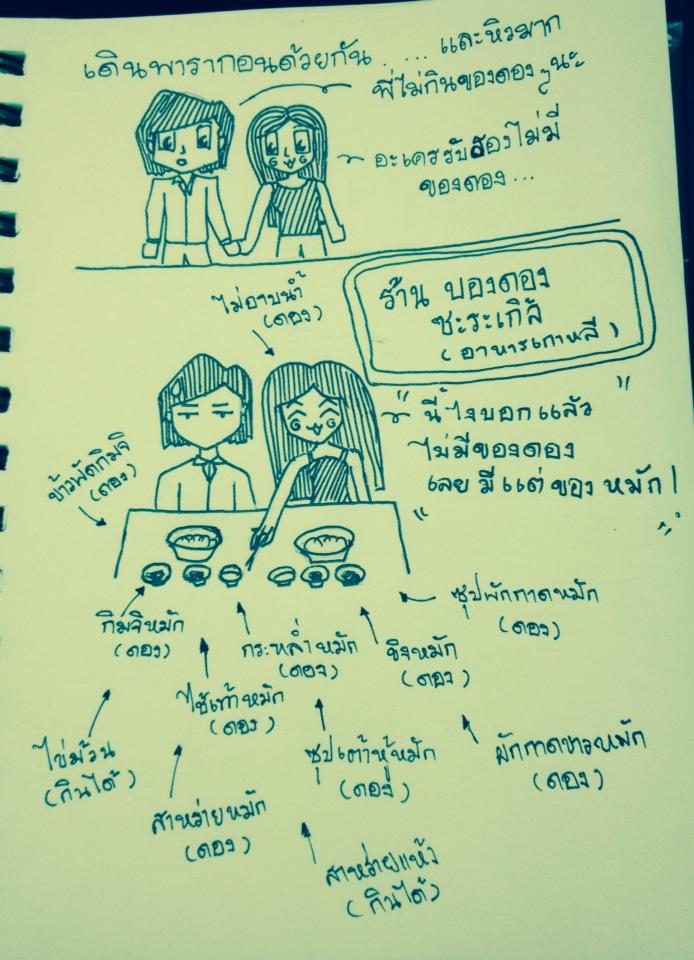 เดินพารากอนด้วยกัน..... และหิวมาก
พี่ไม่กินของดองๆนะ
อะเครรับลองไม่มี
ของดอง...
ไม่อาบน้ำ
(ดอง)
ร้าน บองดอง
ชะระเกิลั
(อาหารเกาหลี)
ข้าวผัดกิมจิ
(ดอง)
"นี่ไงบอกแล้ว"
ไม่มีของดอง
เลย มีแต่ของ หมัก!
ซุปผักกาดหมัก
(ดอง)
กิมจิหมัก
(ดอง)
กระหล่ำหมัก
(ดอง)
ขิงหมัก
(ดอง)
ไช้เท้าหมัก
(ดอง)
ไข่ม้วน
(กินได้)
ซุปเต้าหู้หมัก
(ดอง)
ผักกาดขาวหมัก
(ดอง)
สาหร่ายหมัก
(ดอง)
สาหร่ายแห้ง
(กินได้)